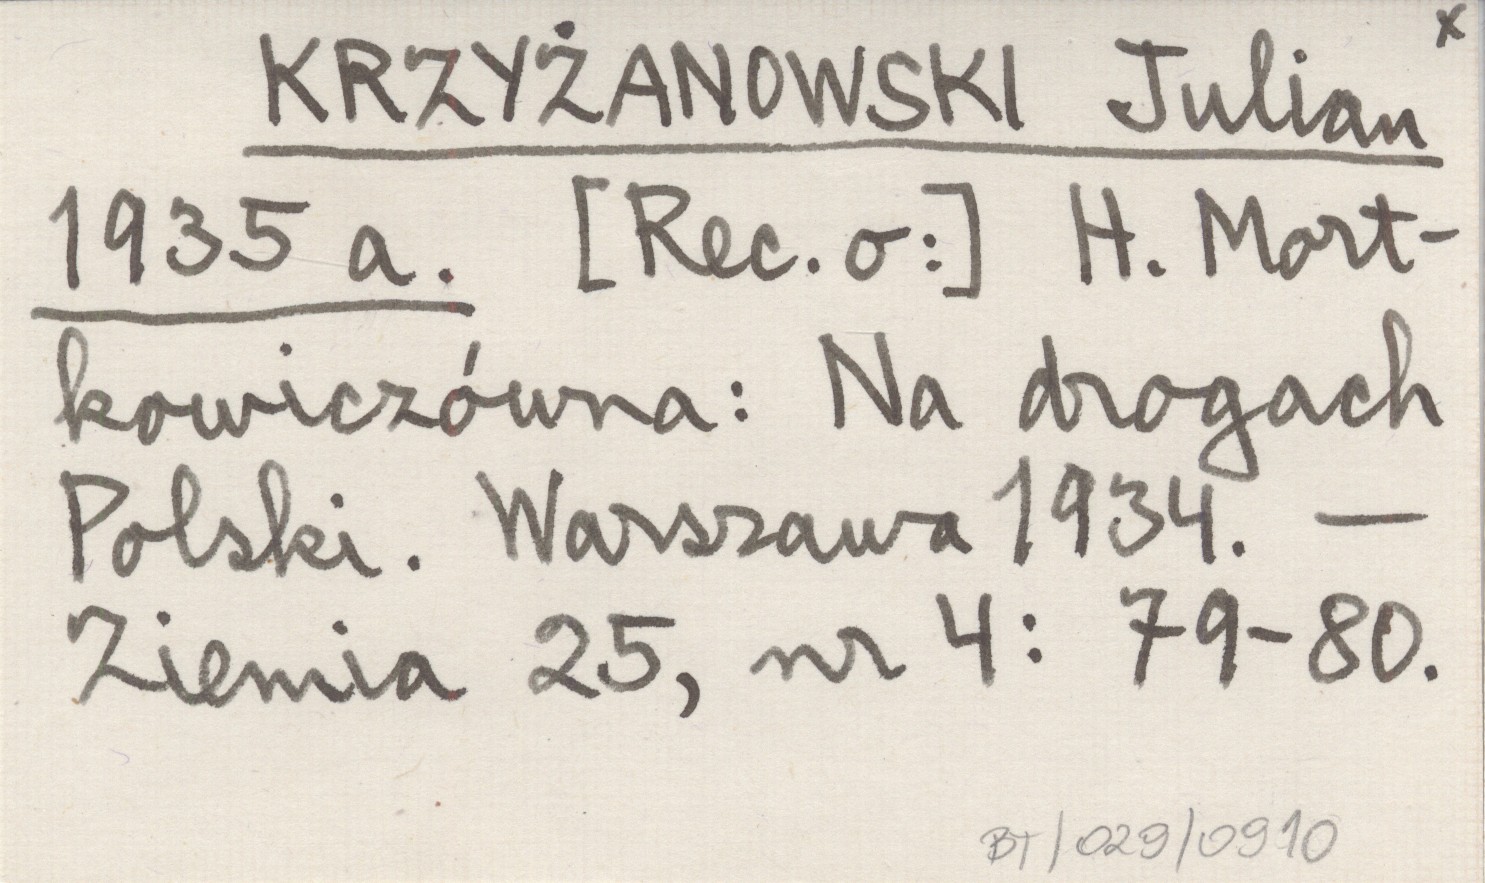 x
KRZYŻANOWSKI Julian
1935 a. [Rec. o:] H. Mort-
kowiczówna: Na drogach
Polski. Warszawa 1934. —
Ziemia 25, nr 4: 79-80.
BT/029/0910